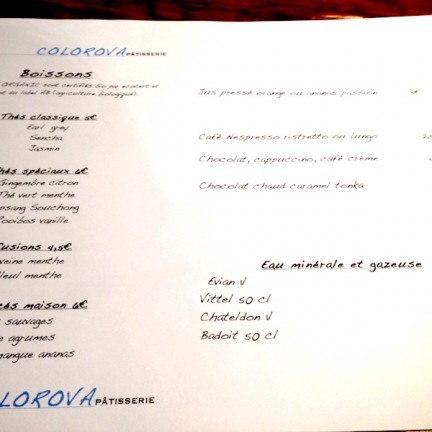 COLOROVA PÂTISSERIE
Boissons
ORGANIC sont certifiés bio par ecocert et
du label AB (agriculture biologique).
Thés classique 5€
Earl grey
Sencha
Jasmin
Thés spéciaux 6€
Gingembre citron
Thé vert menthe
Souchong
Rooibos vanille
4,5€
menthe
menthe
maison 6€
sauvages
agrumes
mangue ananas
Jus pressé orange ou ananas passion
Café Nespresso ristretto ou lungo
Chocolat, cappuccino, café crème
Chocolat chaud caramel tonka
Eau minérale et gazeuse
Evian V
Vittel 50 cl
Chateldon V
Badoit 50 cl
LOROVA PÂTISSERIE